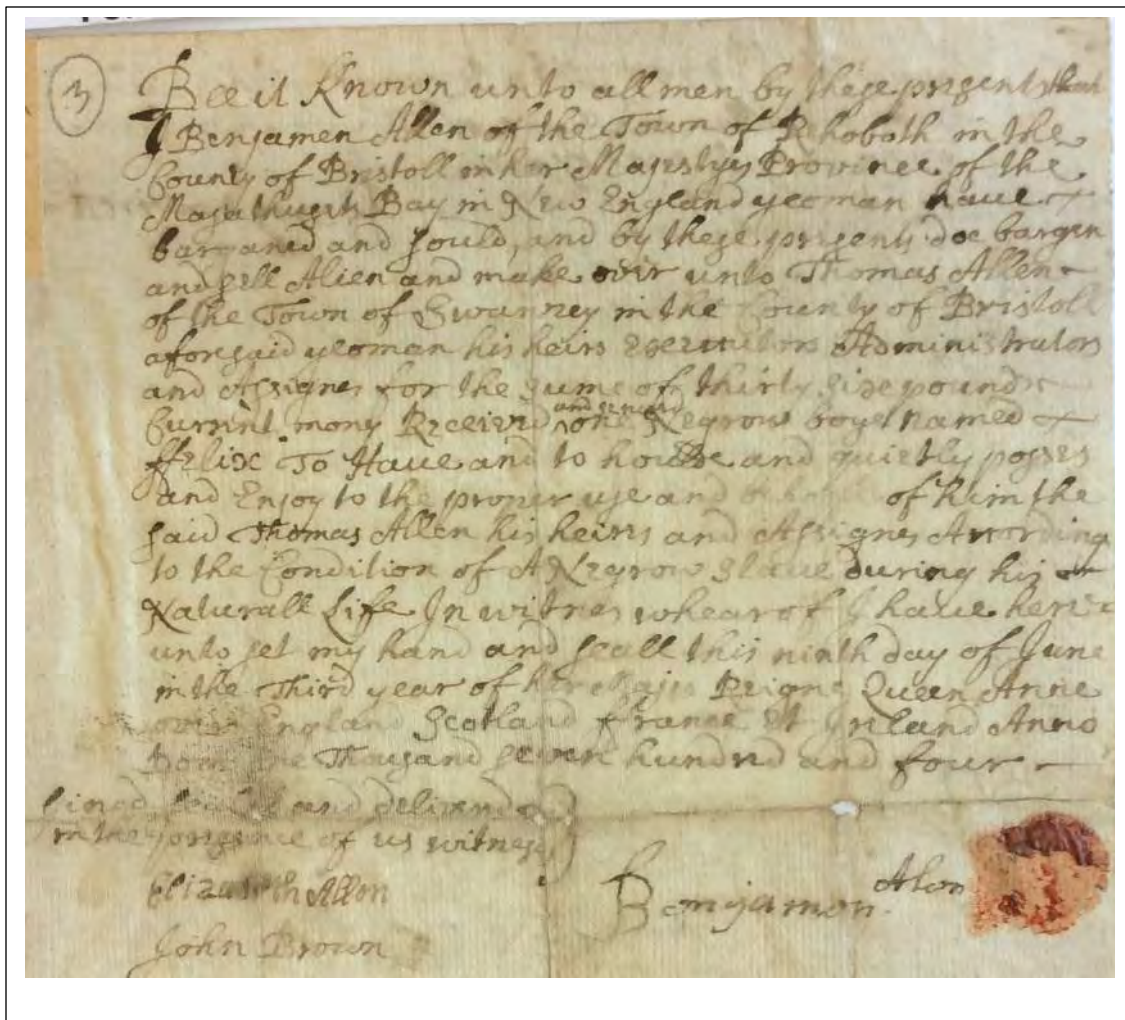 3
Bee it Known unto all men by these presents that
I Benjamen Allen of the Town of Rehoboth in the
County of Bristoll in her Majestyes Province of the
Masathusets Bay in New England yeoman have
barganed and sould, and by these presents doe bargen
and sell Alien and make over unto Thomas Allen
of the Town of Swanzey in the County of Bristoll
aforesaid yeoman his heirs executors Administrators
and Assignes for the sume of thirty sixe pounds
Currint mony Received one Negrow boye named
ffelix To Have and to hould and quietly posses
and Enjoy to the proper use and of him the
said Thomas Allen his heirs and Assignes According
to the Condition of A Negrow Slave during his
Naturall Life In witnes whearof I have here
unto set my hand and seall this ninth day of June
in the Third year of her Reigne Queen Anne
over England Scotland france et Irland Anno
one Thousand seven hundred and four
and delivered
in the presence of us witness
Elizabeth Allen
John Brown
Benjamon Alon